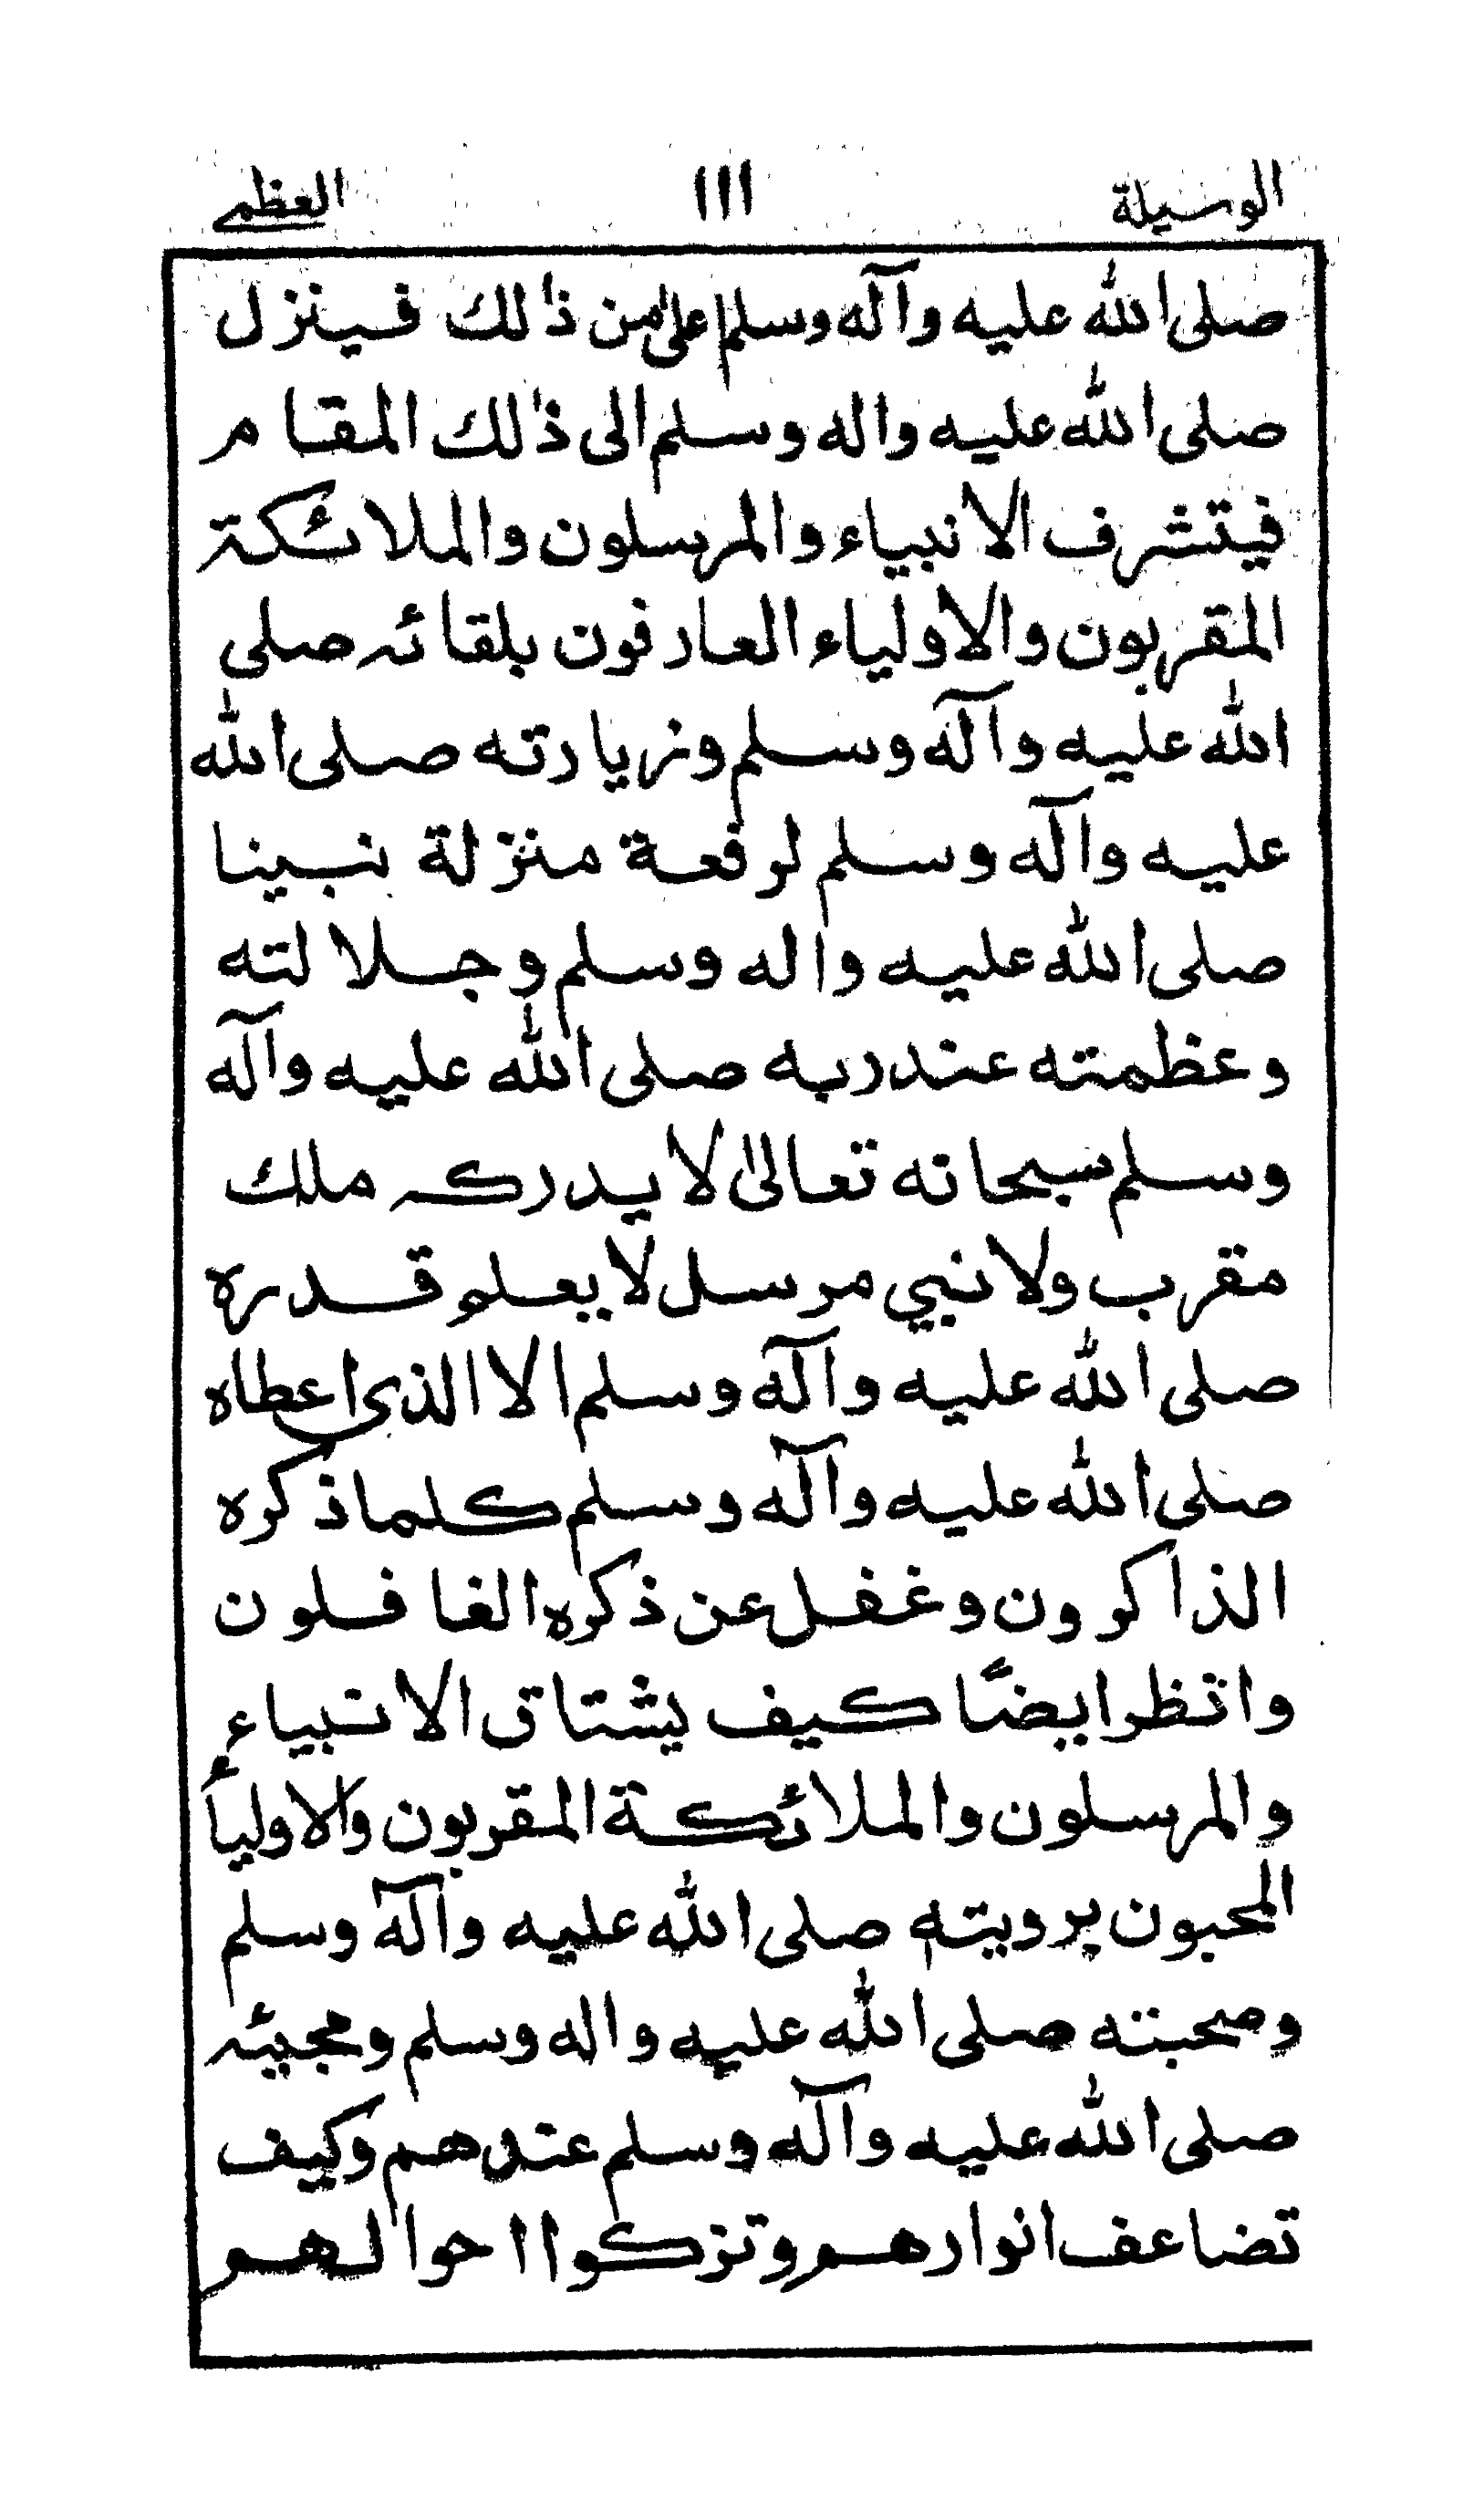 الوسيلة ١١١ العظمى
صلى الله عليه وآله وسلم اعلىٰ من ذٰلك فينزل
صلى الله عليه واله وسلم الى ذٰلك المقام
فيتشرف الانبياء والمرسلون والملائكة
المقربون والاولياء العارفون بلقائه صلى
الله عليه وآله وسلم وزيارته صلى الله
عليه وآله وسلم لرفعة منزلة نبينا
صلى الله عليه واله وسلم وجلالته
وعظمته عند ربه صلى الله عليه وآله
وسلم سبحانه تعالىٰ لا يدركه ملك
مقرب ولا نبي مرسل لا يعلو قدره
صلى الله عليه وآله وسلم الا الذى اعطاه
صلى الله عليه وآله وسلم كلما ذكره
الذاكرون وغفل عن ذكره الغافلون
وانظر ايضًا كيف يشتاق الانبياء
والمرسلون والملائكة المقربون والاولياء
المحبون برويته صلى الله عليه وآله وسلم
وصحبته صلى الله عليه واله وسلم ومجيئه
صلى الله عليه وآله وسلم عندهم وكيف
تضاعف انوارهم وتزكوا احوالهم